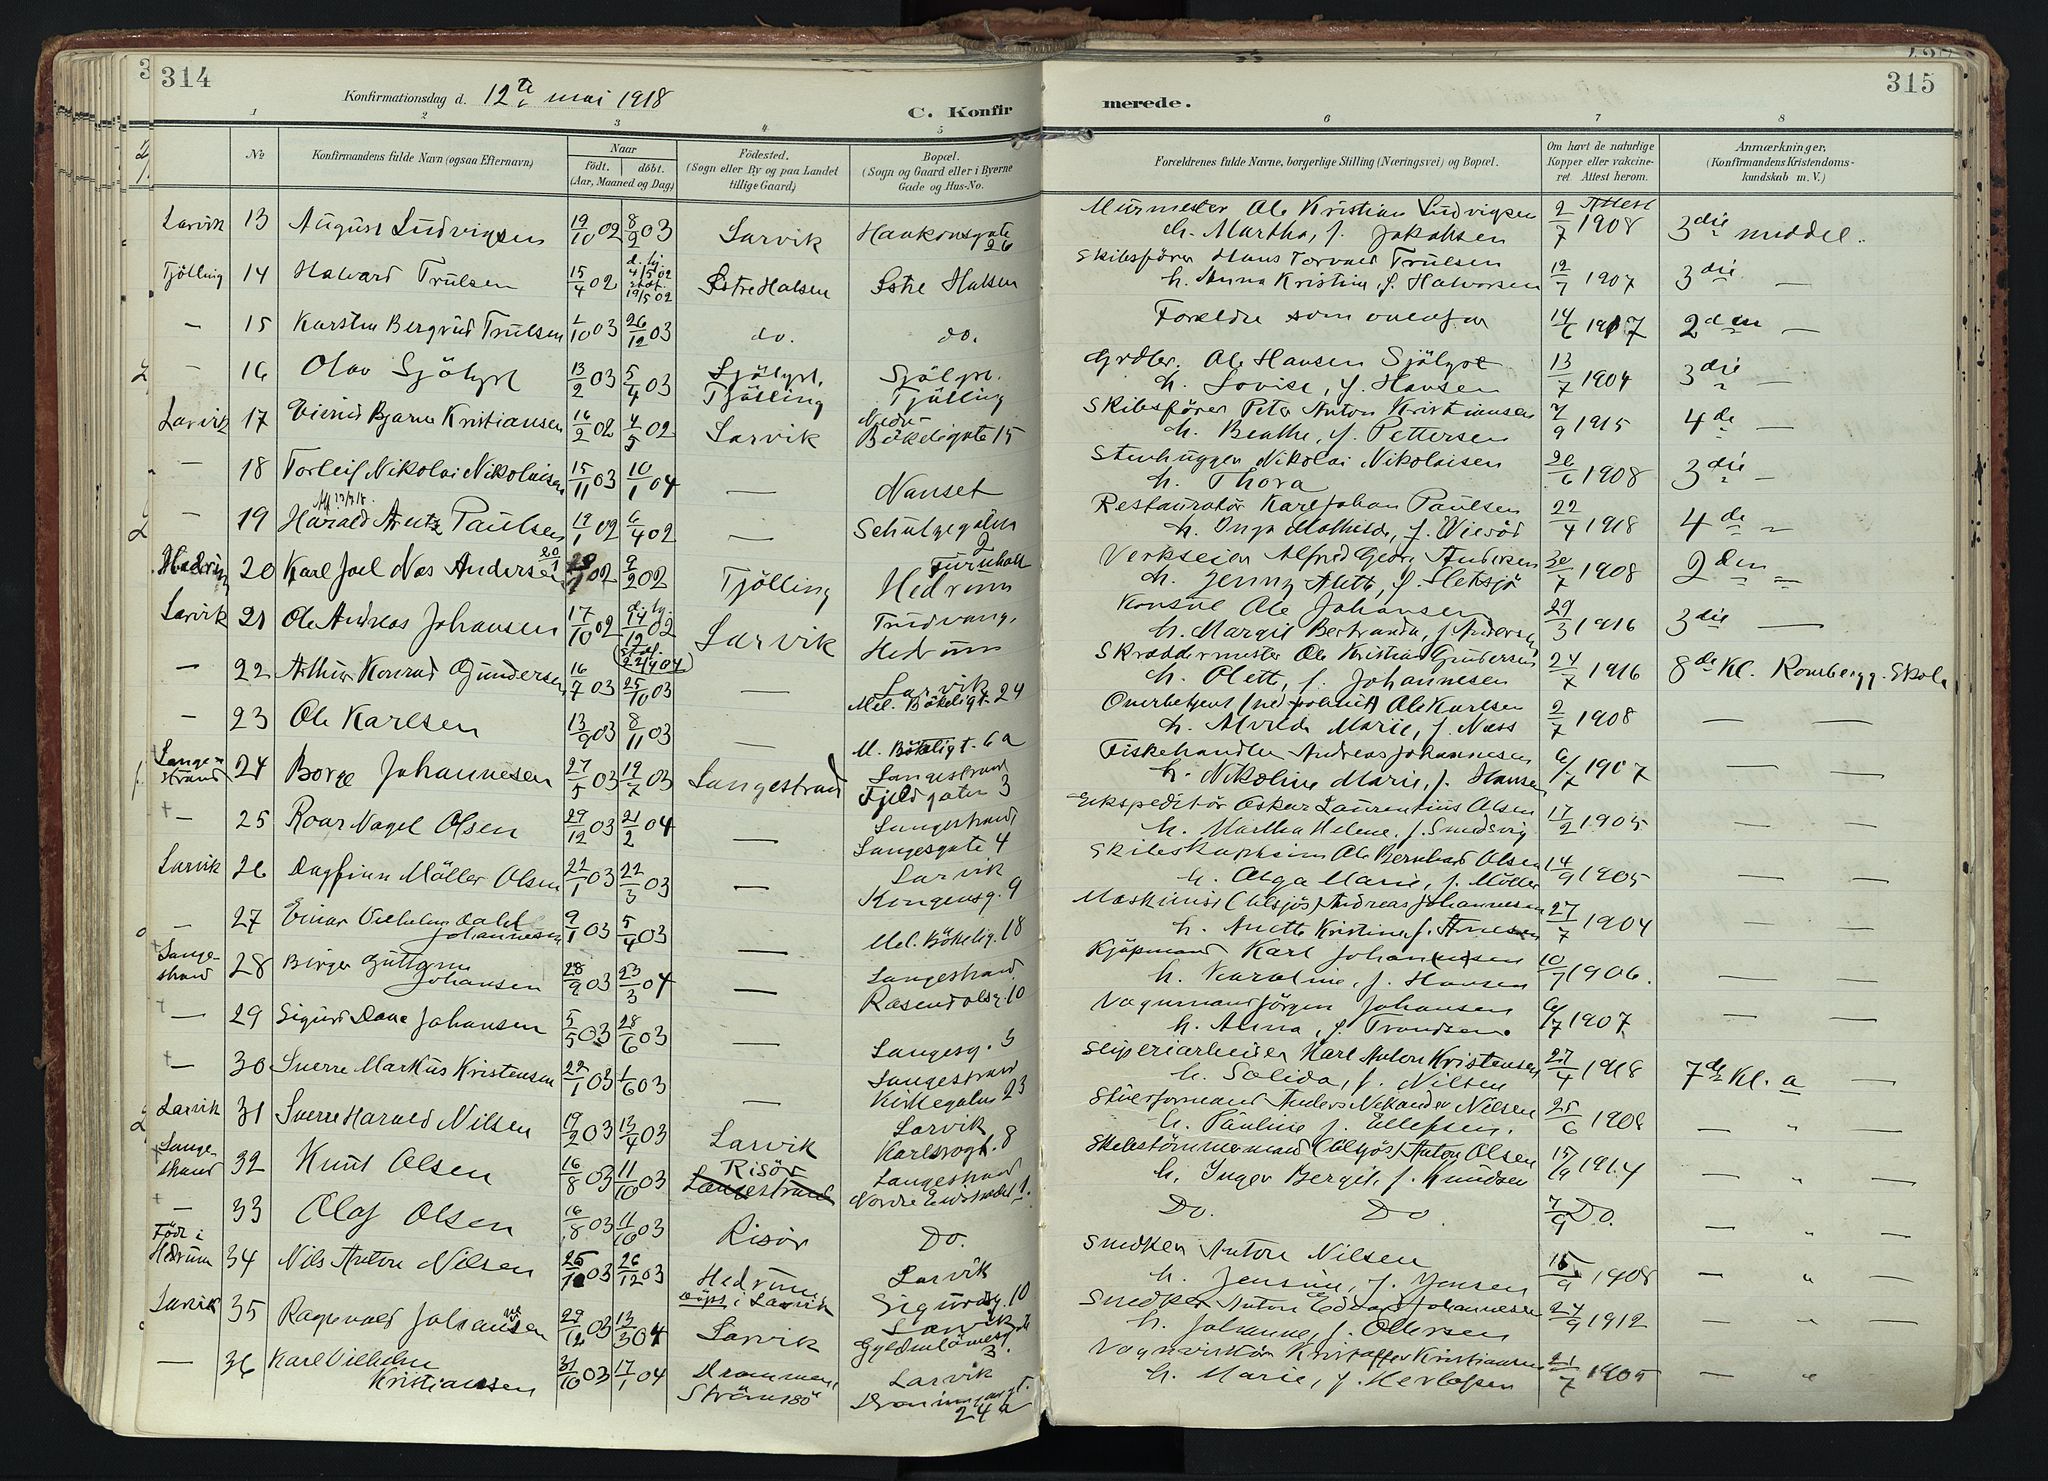 314
Konfirmationsdag d. 12te mai 1918
C. Konfir
merede.
315
1 2 3 4 5 6 7 8
No
Konfirmandens fulde Navn (ogsaa Efternavn)
Naar
født. døbt.
(Aar, Maaned og Dag)
Fødested.
(Sogn eller By og paa Landet
tillige Gaard)
Bopæl.
(Sogn og Gaard eller i Byerne
Gade og Hus-No.
Forældrenes fulde Navne, borgerlige Stilling (Næringsvei) og Bopæl.
Om havt de naturlige
Kopper eller vakcine-
ret. Attest herom.
Anmærkninger.
(Konfirmandens Kristendoms-
kundskab m. V.)
Larvik 13 August Ludvigsen 19/10 02 8/2 03 Larvik Haakonsgate 26 Murmester Ole Kristian Ludvigsen h. Martha, f. Jakobsen 2/7 1908 Attest 3die middel.
Tjölling 14 Halvard Trulsen 15/4 02 d. hj. 4/5 02 stadf. 19/5 02 Östre Halsen Östre Halsen Skibsförer Hans Torvald Trulsen h. Anna Kristine, f. Halvorsen 12/7 1907 3die —
— 15 Karsten Bergvid Trulsen 1/10 03 26/12 03 do. do. Foreldre som ovenfor 14/6 1917 2den —
— 16 Olav Sjölyst 13/2 03 5/4 03 Sjölyst, Tjölling Sjölyst. Tjölling Ole Hansen Sjölyst h. Lovise, f. Hansen 13/7 1904 3die —
Larvik 17 Bjarne Kristiansen 16/2 02 4/5 02 Larvik Nedre Bökeligate 15 Skibsförer Peter Anton Kristiansen h. Beathe, f. Pettersen 7/9 1915 4de —
— 18 Torleif Nikolai Nikolaisen 15/11 03 10/1 04 — Nanset Stenhugger Nikolai Nikolaisen h. Thora 26/6 1908 3die —
— 19 Harald Arntz Paulsen 19/1 02 6/4 02 — Schultzegaten 2 Restauratör Karl Johan Paulsen h. Inga Mathilde, f. Wieröd 22/4 1918 4de —
Hedrum 20 Karl Joel Næs Andersen 20/1 02 9/2 02 Tjölling Furuholt Hedrum Verkseier Alfred Georg Andersen h. Jenny Anette, f. Fleksjö 30/7 1908 2den —
Larvik 21 Ole Andreas Johansen 17/10 02 d. hj. 14/12 02 stadf. (22/4 04) Larvik Trudvang, Hedrum Konsul Ole Johansen h. Margit Bertranda, f. Andersen 29/3 1916 3die —
— 22 Arthur Konrad Gundersen 16/7 03 25/10 03 — Larvik Mel. Bökeligt. 24 Skræddermester Ole Kristian Gundersen h. Olette, f. Johannesen 24/7 1916 8de Kl. Rombergg. Skole
— 23 Ole Karlsen 13/9 03 8/11 03 — M. Bökeligt. 6a Overbetjent (ved politiet) Ole Karlsen h. Alvilde Marie, f. Næss 2/7 1908 — —
Lange-strand 24 Borge Johannesen 27/5 03 19/7 03 Langestrand Langestrand Fjeldgaten 3 Fiskehandler Andreas Johannesen h. Nikoline Marie, f. Hansen 6/7 1907 — —
— 25 Roar Nagel Olsen 29/12 03 21/2 04 — Langestrand Langesgate 4 Ekspeditör Oskar Laurentius Olsen h. Martha Helene, f. Smedsvig 17/2 1905 — —
Larvik 26 Dagfinn Möller Olsen 22/1 03 22/3 03 — Larvik Kongensg. 9 Skibskaptein Ole Bernhard Olsen h. Olga Marie, f. Möller 14/9 1905 — —
— 27 Einar Vilhelm Dahl Johannesen 9/1 03 5/4 03 — Mel. Bökelig. 18 Maskinist (tilsjös) Andreas Johannesen h. Anette Kristine, f. Arnesen 27/7 1904 — —
Lange-strand 28 Birger Guttorm Johansen 28/9 03 23/3 04 — Langestrand Rosendalsg. 10 Kjöpmand Karl Johansen h. Karoline, f. Hansen 10/7 1906. — —
— 29 Sigurd Dane Johansen 5/5 03 28/6 03 — Langesg. 3 Vognmand Jörgen Johansen h. Anna, f. Trondsen. 6/7 1907 — —
— 30 Sverre Markus Kristensen 22/1 03 1/6 03 — Langestrand Kirkegaten 23 Sliperiarbeider Karl Anton Kristensen h. Solida, f. Nilsen 27/4 1918 7de Kl. a —
Larvik 31 Sverre Harald Nilsen 19/2 03 13/4 03 Larvik Larvik Karlsrogt. 8 Stuerformand Anders Nikander Nilsen h. Pauline f. Ellefsen. 25/6 1908 — " —
Lange-strand 32 Knut Olsen 16/8 03 11/10 03 Risör Langestrand Langestrand Nordre 1. Skibstömmermand (tilsjös) Anton Olsen h. Inger Bergit, f. Knudsen 15/9 1914 — " —
— 33 Olaf Olsen 16/8 03 11/10 03 Risör Do. Do. Do. 7/9 Do. — " —
Född i Hedrum 34 Nils Anton Nilsen 25/10 03 26/12 03 Hedrum, döpt i Larvik Larvik Sigurdsg. 10 Snedker Anton Nilsen h. Jensine, f. Jensen 15/9 1908 — " —
Larvik 35 Ragnvald Johannesen 29/12 03 13/3 04 Larvik Larvik Gyldenlövesgate 3. Snedker Anton Edvard Johannesen h. Johanne, f. Ollersen 24/9 1912 — " —
— 36 Karl Vilhelm Kristiansen 31/10 03 17/1 04 Drammen, Strömsö Larvik Dronningensgt. 24a Vognvisitör Kristoffer Kristiansen h. Marie, f. Herlofsen 21/7 1905 — "